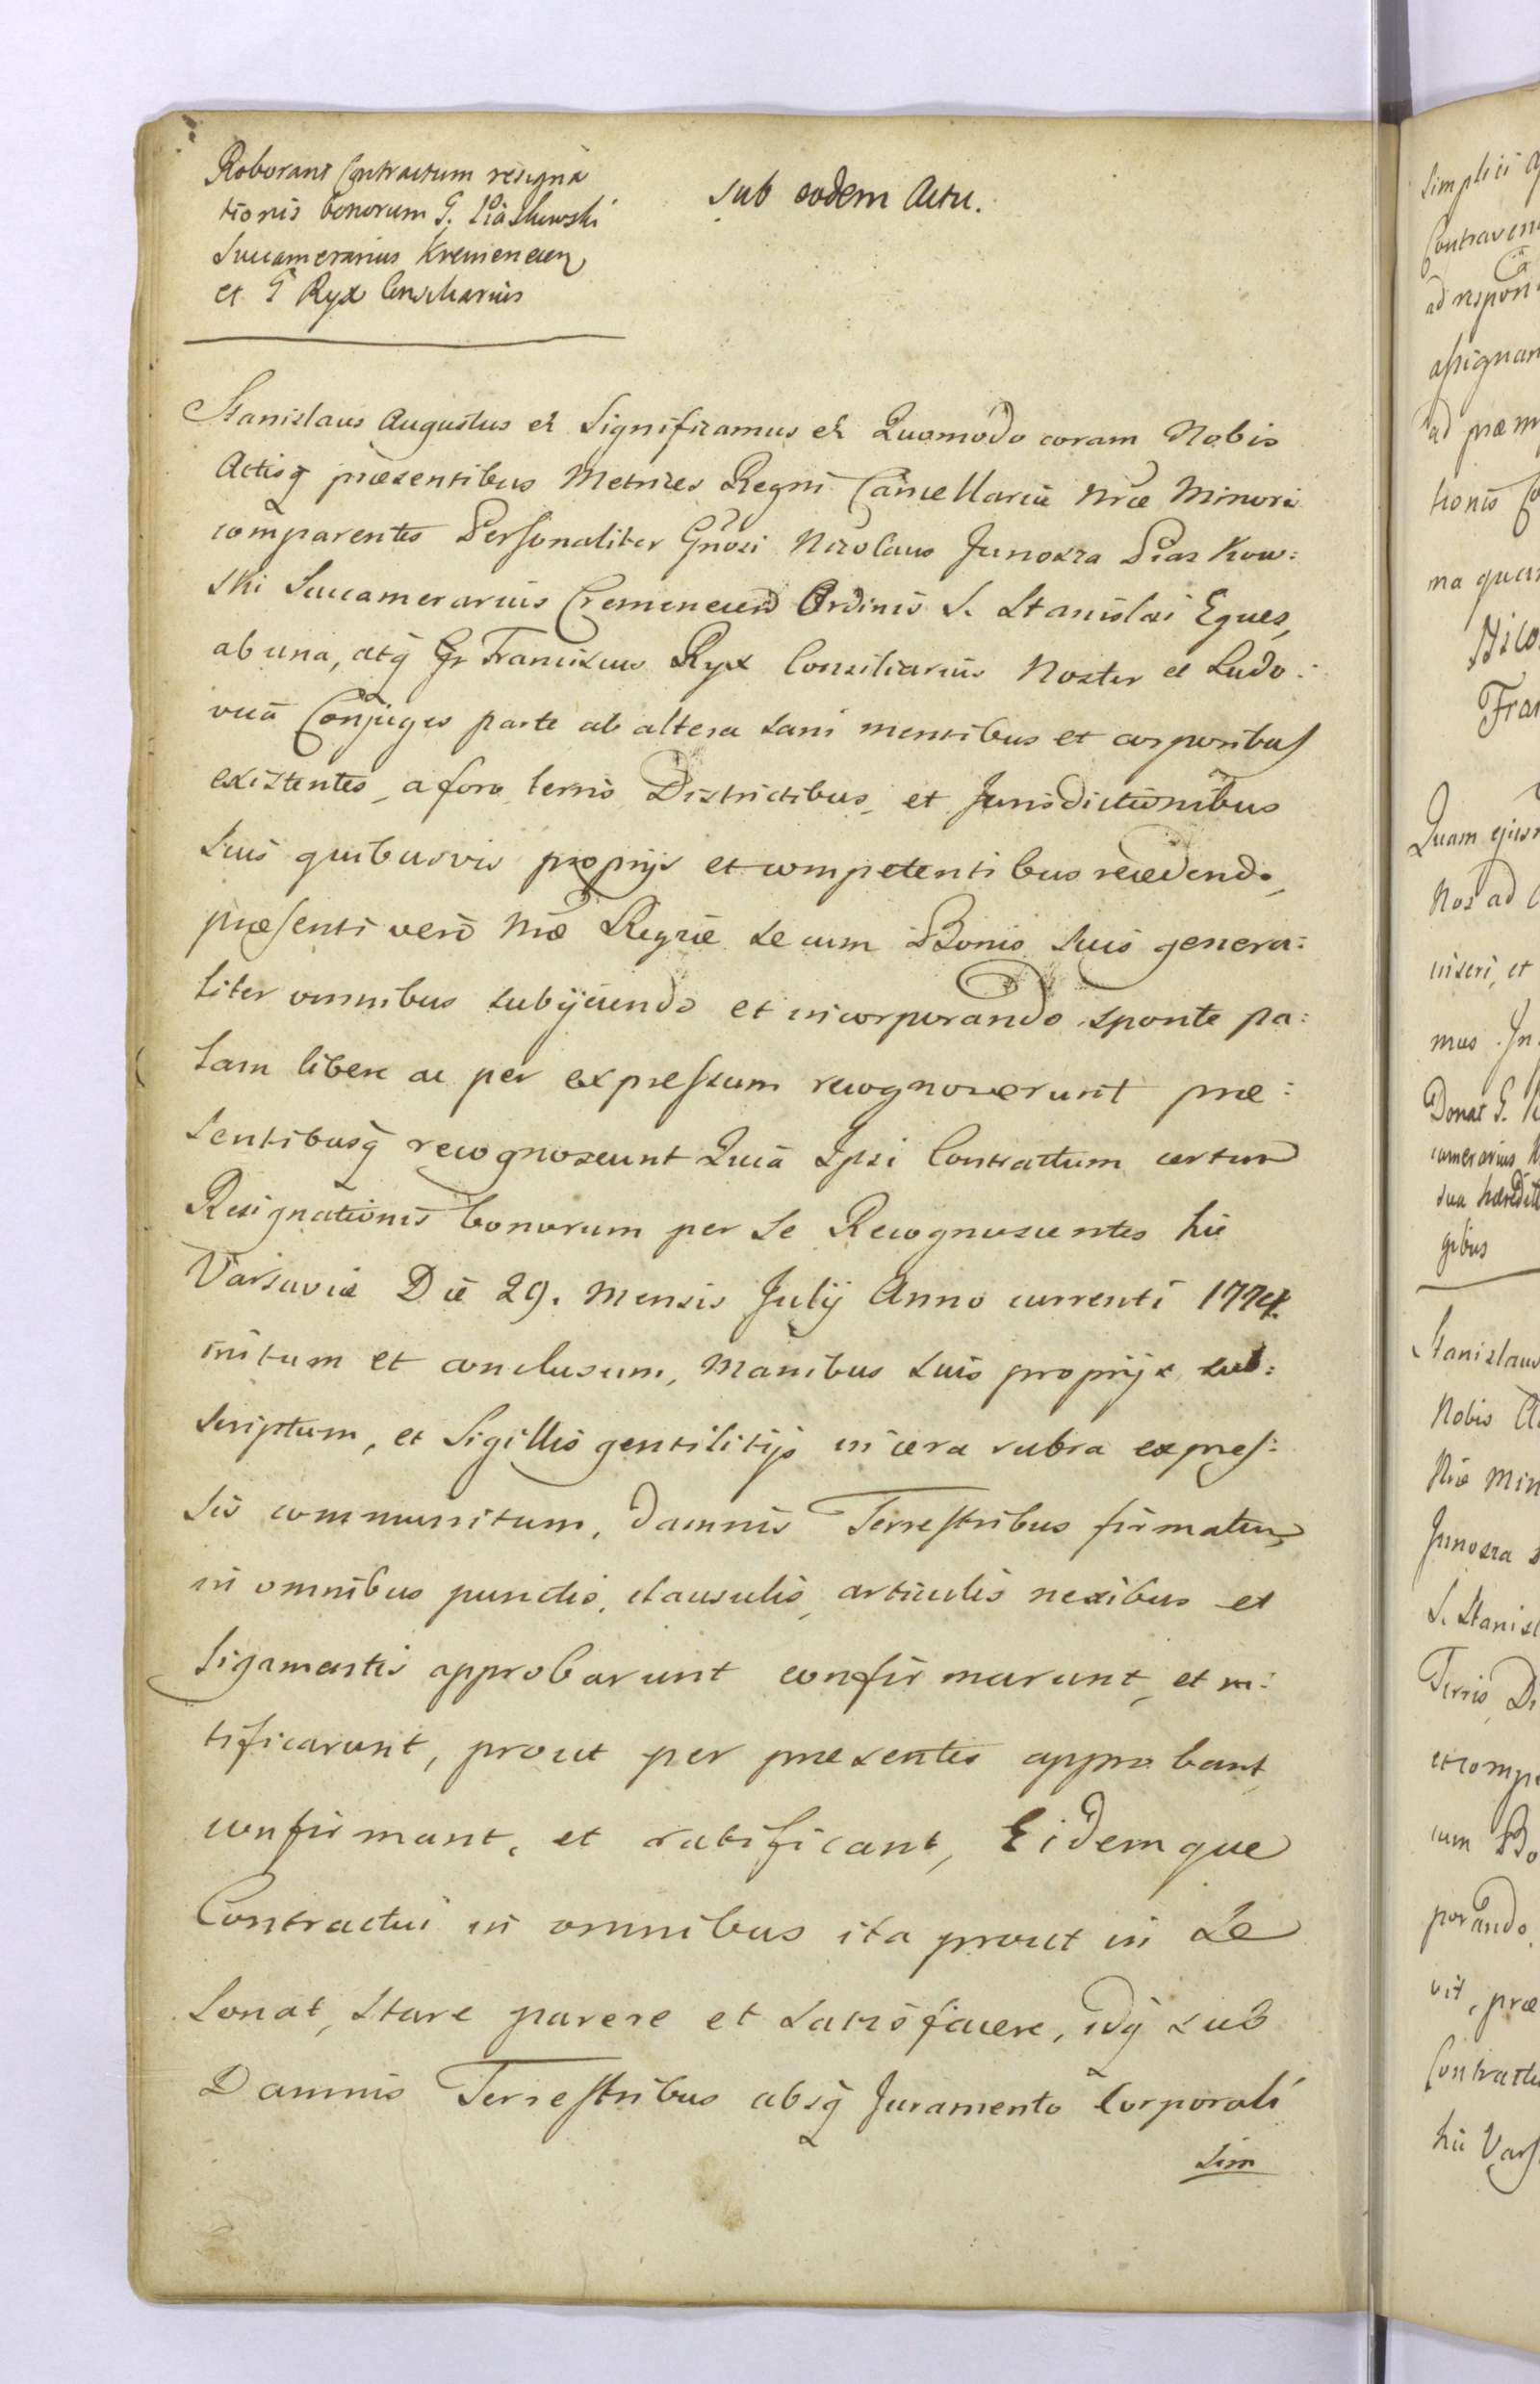 Roborant Contractum resigna
tionis bonorum G. Piaskowski
Succamerarius Kremenecen
et G Ryx Consiliarius
sub eodem Actu.
Stanislaus Augustus et Significamus et Quomodo coram Nobis
Actisq præsentibus Metrices Regni Cancellariæ Nræ Minoris
comparentes Personaliter Gnosi Nicolaus Junosza Piaskow:
ski Succamerarius Cremenecen Ordinis S. Stanislai Eques,
ab una, atq Gr Franciscus Ryx Consiliarius Noster et Ludo:
vica Conjuges parte ab altera sani mentibus et corporibus
existentes, a foro terris Districtibus, et Jurisdictionibus
suis quibusvis proprijs et competentibus recedendo,
præsenti vero Næ Regiæ se cum Bonis suis genera:
liter omnibus subijciendo et incorporando sponte pa:
lam libere ac per expressum recognoverunt præ:
sentibusq recognoscunt Quia Ipsi Contractum certum
Resignationis bonorum per se Recognoscentes hic
Varsaviæ Die 29. Mensis Julij Anno currenti 1774.
initum et conclusum, Manibus suis proprijs sub:
scriptum, et Sigillis gentilitijs in cera rubra expres:
sis communitum, damnis Terrestribus firmatum,
in omnibus punctis, clausulis, articulis nexibus et
ligamentis approbarunt confirmarunt, et ra:
tificarunt, prout per præsentes approbant
confirmant, et ratificant, Eidemque
Contractui in omnibus ita prout in se
sonat, stare parere et satisfacere, idq sub
Damnis Terrestribus absq Juramento Corporali
sim
simplici
Contraven
ad respon
assignan
ad præm
tionis Co
ma quar
Nico
Fran
Quam ejus
Nos ad
inseri, et
mus. In
Donat G.
camerarius
sua hæredit
gibus
Stanislaus
Nobis
Nræ Min
Junosza
S. Stanisl
Terris, Di
et compe
cum Bo
porando
vit, præ
Contractu
hic Vars